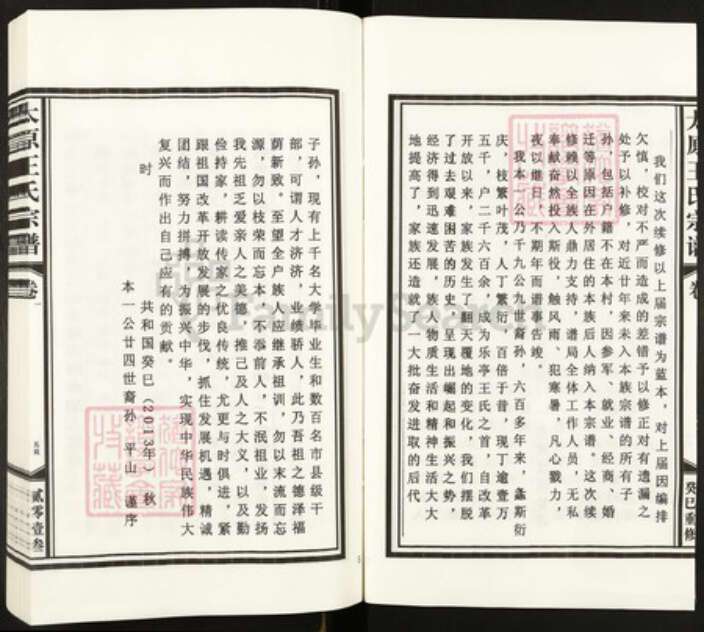 太原王氏宗譜
卷
癸巳重修
我们这次续修以上届宗谱为蓝本，对上届因编排
欠慎，校对不严而造成的差错予以修正对有遗漏之
处予以补修，对近廿年来未入本族宗谱的所有子
孙，包括户籍不在本村，因参军、就业、经商、婚
迁等原因在外居住的本族后人纳入本宗谱。这次续
修赖以全族人鼎力支持，谱局全体工作人员，无私
奉献奋然投入斯役，触风雨、犯寒暑，凡心戮力，
夜以继日，不期年而谱事告竣。
我本一公乃千九公九世裔孙，六百多年来，螽斯衍
庆，枝繁叶茂，人丁繁衍，百倍于昔，现丁逾壹万
五千，户二千六百余，成为乐亭王氏之首，自改革
开放以来，家族发生了翻天覆地的变化，我们摆脱
了过去艰难困苦的历史，呈现出崛起和振兴之势，
经济得到迅速发展，族人物质生活和精神生活大大
地提高了，家族还造就了一大批奋发进取的后代
子孙，现有上千名大学毕业生和数百名市县级干
部，可谓人才济济，业绩骄人，此乃吾祖之德泽福
荫新致。至望全户族人，应继承祖训，勿以末流而忘
源，勿以枝荣而忘本，不忝前人，不泯祖业，发扬
我先祖乏爱亲人之美德，推己及人之大义，以及勤
俭持家，耕读传家之优良传统，尤更与时俱进，紧
跟祖国改革开放发展的步伐，抓住发展机遇，精诚
团结，努力拼搏，为振兴中华，实现中华民族伟大
复兴而作出自己应有的贡献。
时
共和国癸巳（2013年）秋
本一公廿四世裔孙 平山 谨序
太原王氏宗譜
卷一
贰零壹叁
FamilySearch